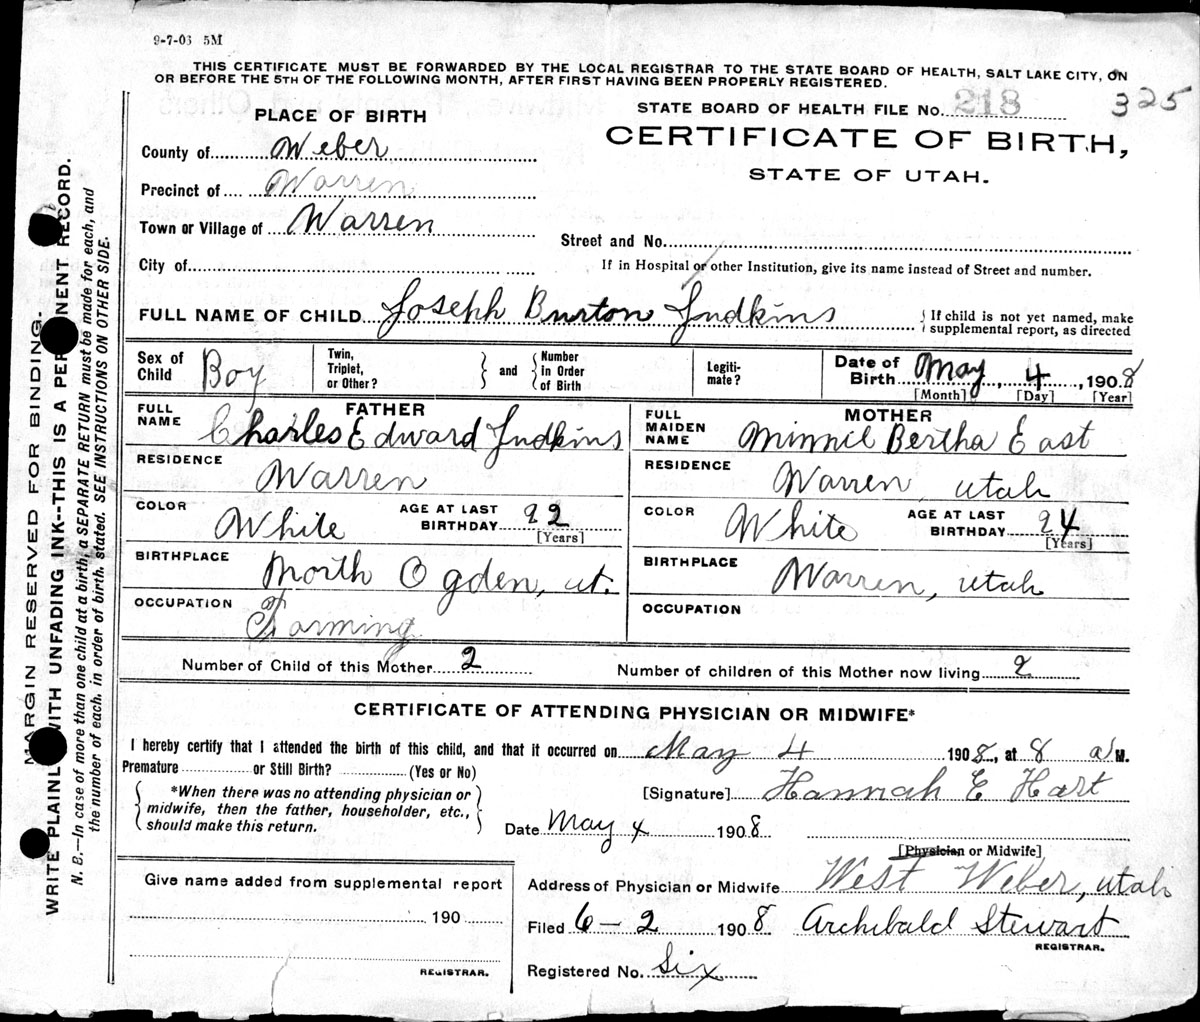 9-7-03 5M
THIS CERTIFICATE MUST BE FORWARDED BY THE LOCAL REGISTRAR TO THE STATE BOARD OF HEALTH, SALT LAKE CITY, ON
OR BEFORE THE 5TH OF THE FOLLOWING MONTH, AFTER FIRST HAVING BEEN PROPERLY REGISTERED.
STATE BOARD OF HEALTH FILE No. 218 325
CERTIFICATE OF BIRTH,
STATE OF UTAH.
PLACE OF BIRTH
County of Weber
Precinct of Warren
Town or Village of Warren
Street and No.
City of
If in Hospital or other Institution, give its name instead of Street and number.
FULL NAME OF CHILD Joseph Burton Judkins
If child is not yet named, make
supplemental report, as directed
Sex of Child Boy
Twin, Triplet, or Other?
and
Number in Order of Birth
Legiti-mate?
Date of Birth May, 4, 1908
[Month] [Day] [Year]
FATHER
FULL NAME Charles Edward Judkins
RESIDENCE Warren
COLOR White
AGE AT LAST BIRTHDAY 22
[Years]
BIRTHPLACE North Ogden, ut.
OCCUPATION Farming
MOTHER
FULL MAIDEN NAME Minnie Bertha East
RESIDENCE Warren, utah
COLOR White
AGE AT LAST BIRTHDAY 24
[Years]
BIRTHPLACE Warren, utah
OCCUPATION
Number of Child of this Mother 2
Number of children of this Mother now living 2
CERTIFICATE OF ATTENDING PHYSICIAN OR MIDWIFE*
I hereby certify that I attended the birth of this child, and that it occurred on May 4 1908, at 8 a M.
Premature or Still Birth? (Yes or No)
*When there was no attending physician or
midwife, then the father, householder, etc.,
should make this return.
[Signature] Hannah E Hart
Date May 4 1908
[Physician or Midwife]
Give name added from supplemental report
190
REGISTRAR.
Address of Physician or Midwife West Weber, utah
Filed 6-2 1908 Archibald Stewart
REGISTRAR.
Registered No. Six
MARGIN RESERVED FOR BINDING.
WRITE PLAINLY WITH UNFADING INK--THIS IS A PERMANENT RECORD.
N. B.—In case of more than one child at a birth, a SEPARATE RETURN must be made for each, and
the number of each, in order of birth, stated. SEE INSTRUCTIONS ON OTHER SIDE.